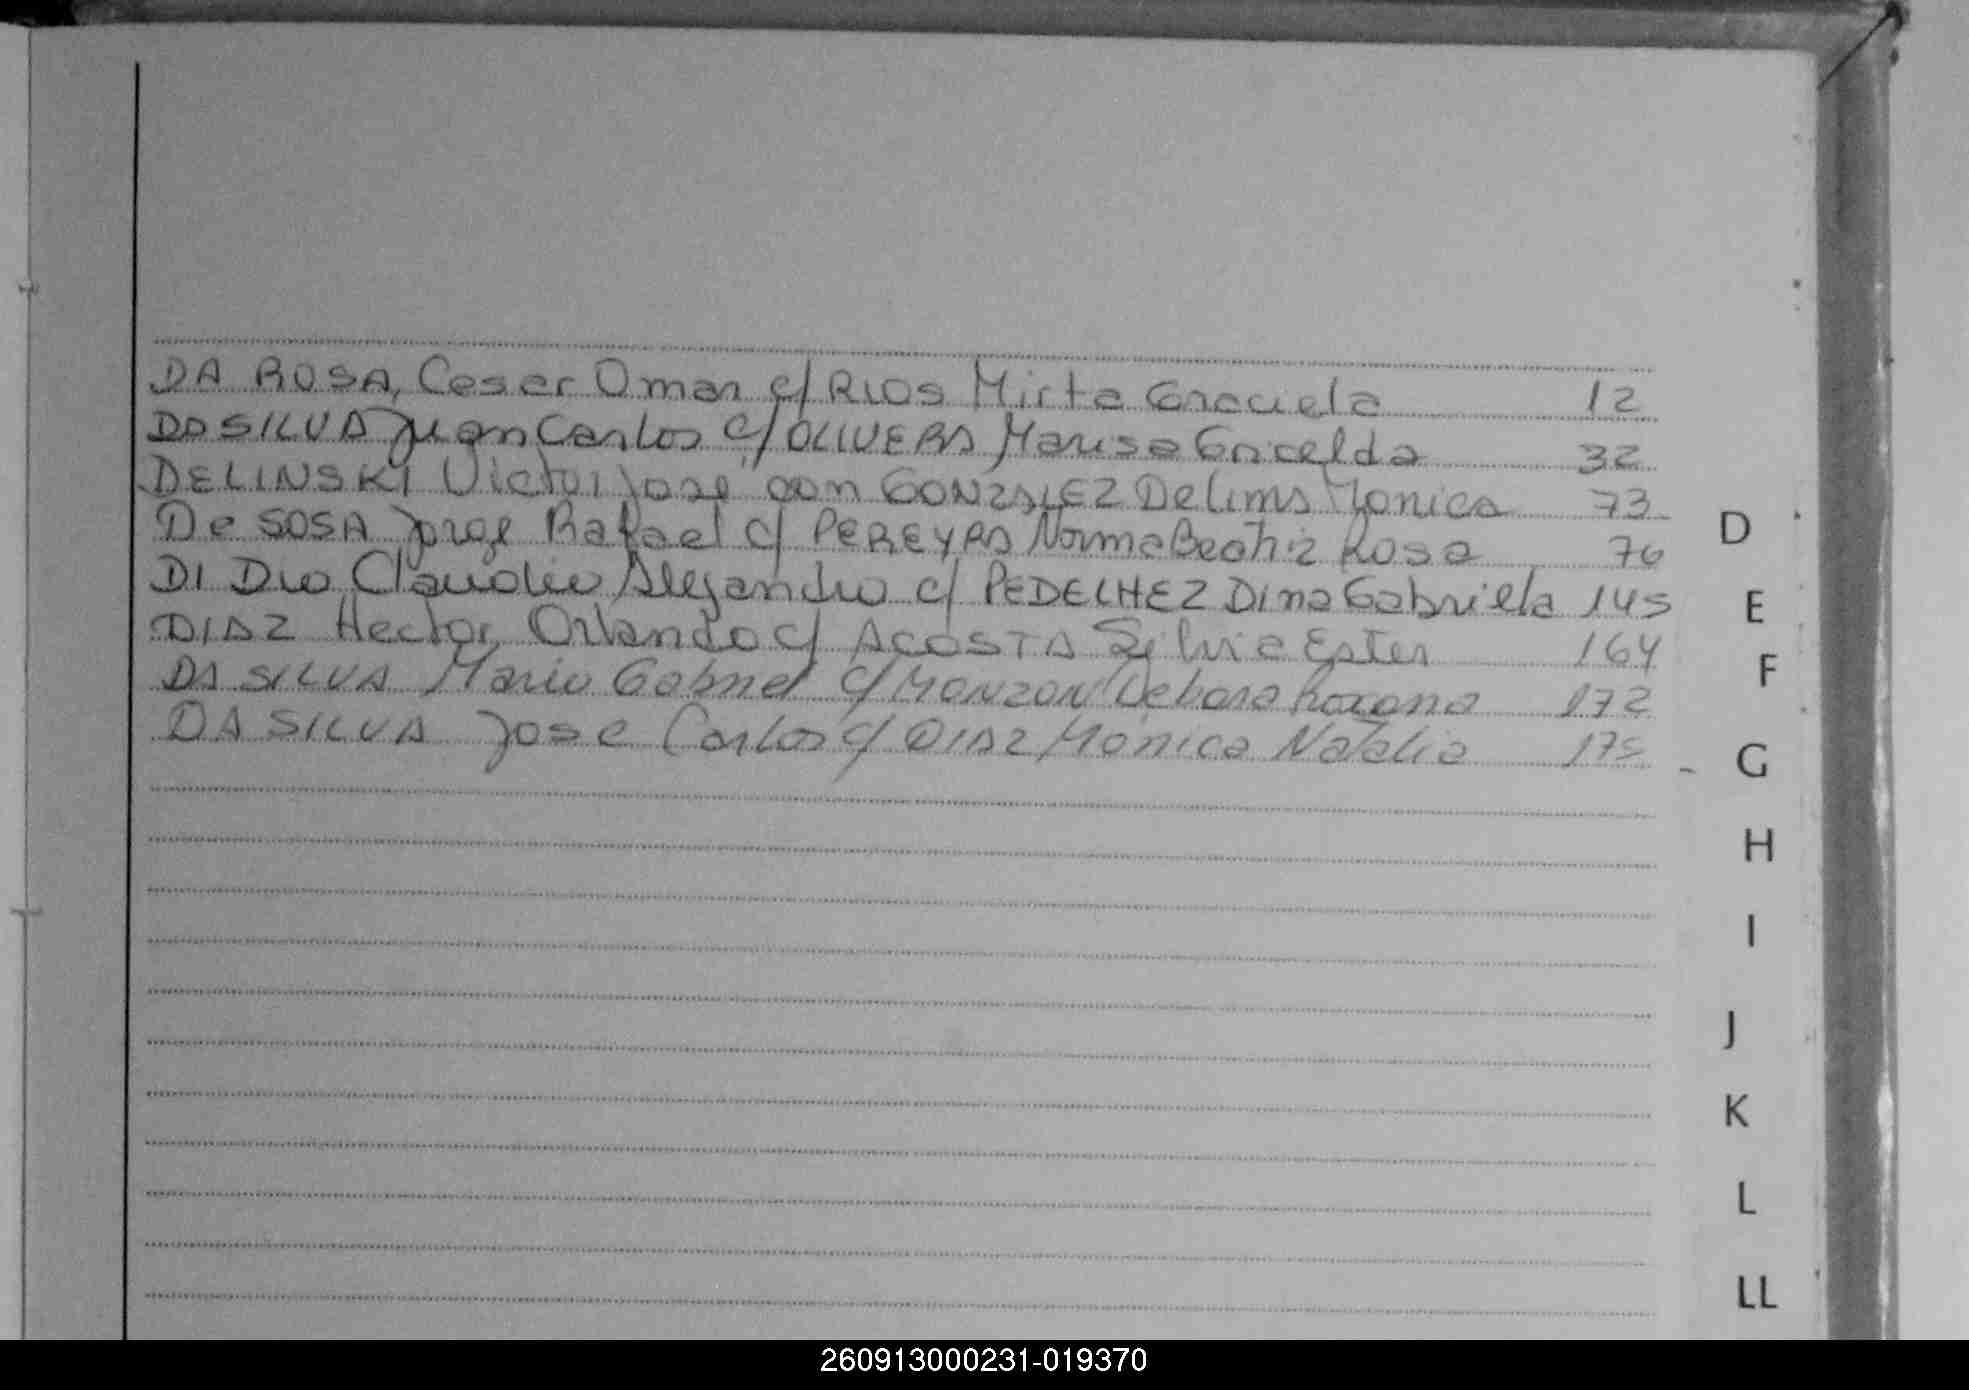 DA ROSA, Cesar Omar c/ RIOS Mirta Graciela 12
DA SILVA Juan Carlos c/ OLIVERA Marisa Gricelda 32
DELINSKI Victor José con GONZALEZ Delima Monica 73
De SOSA Jorge Rafael c/ PEREYRA Norma Beatriz Rosa 76
DI Dio Claudio Alejandro c/ PEDELHEZ Dina Gabriela 145
DIAZ Hector Orlando c/ ACOSTA Silvia Ester 164
DA SILVA Mario Gabriel c/ MONZON Debora Roxana 172
DA SILVA Jose Carlos c/ DIAZ Monica Natalia 175
D
E
F
G
H
I
J
K
L
LL
260913000231-019370